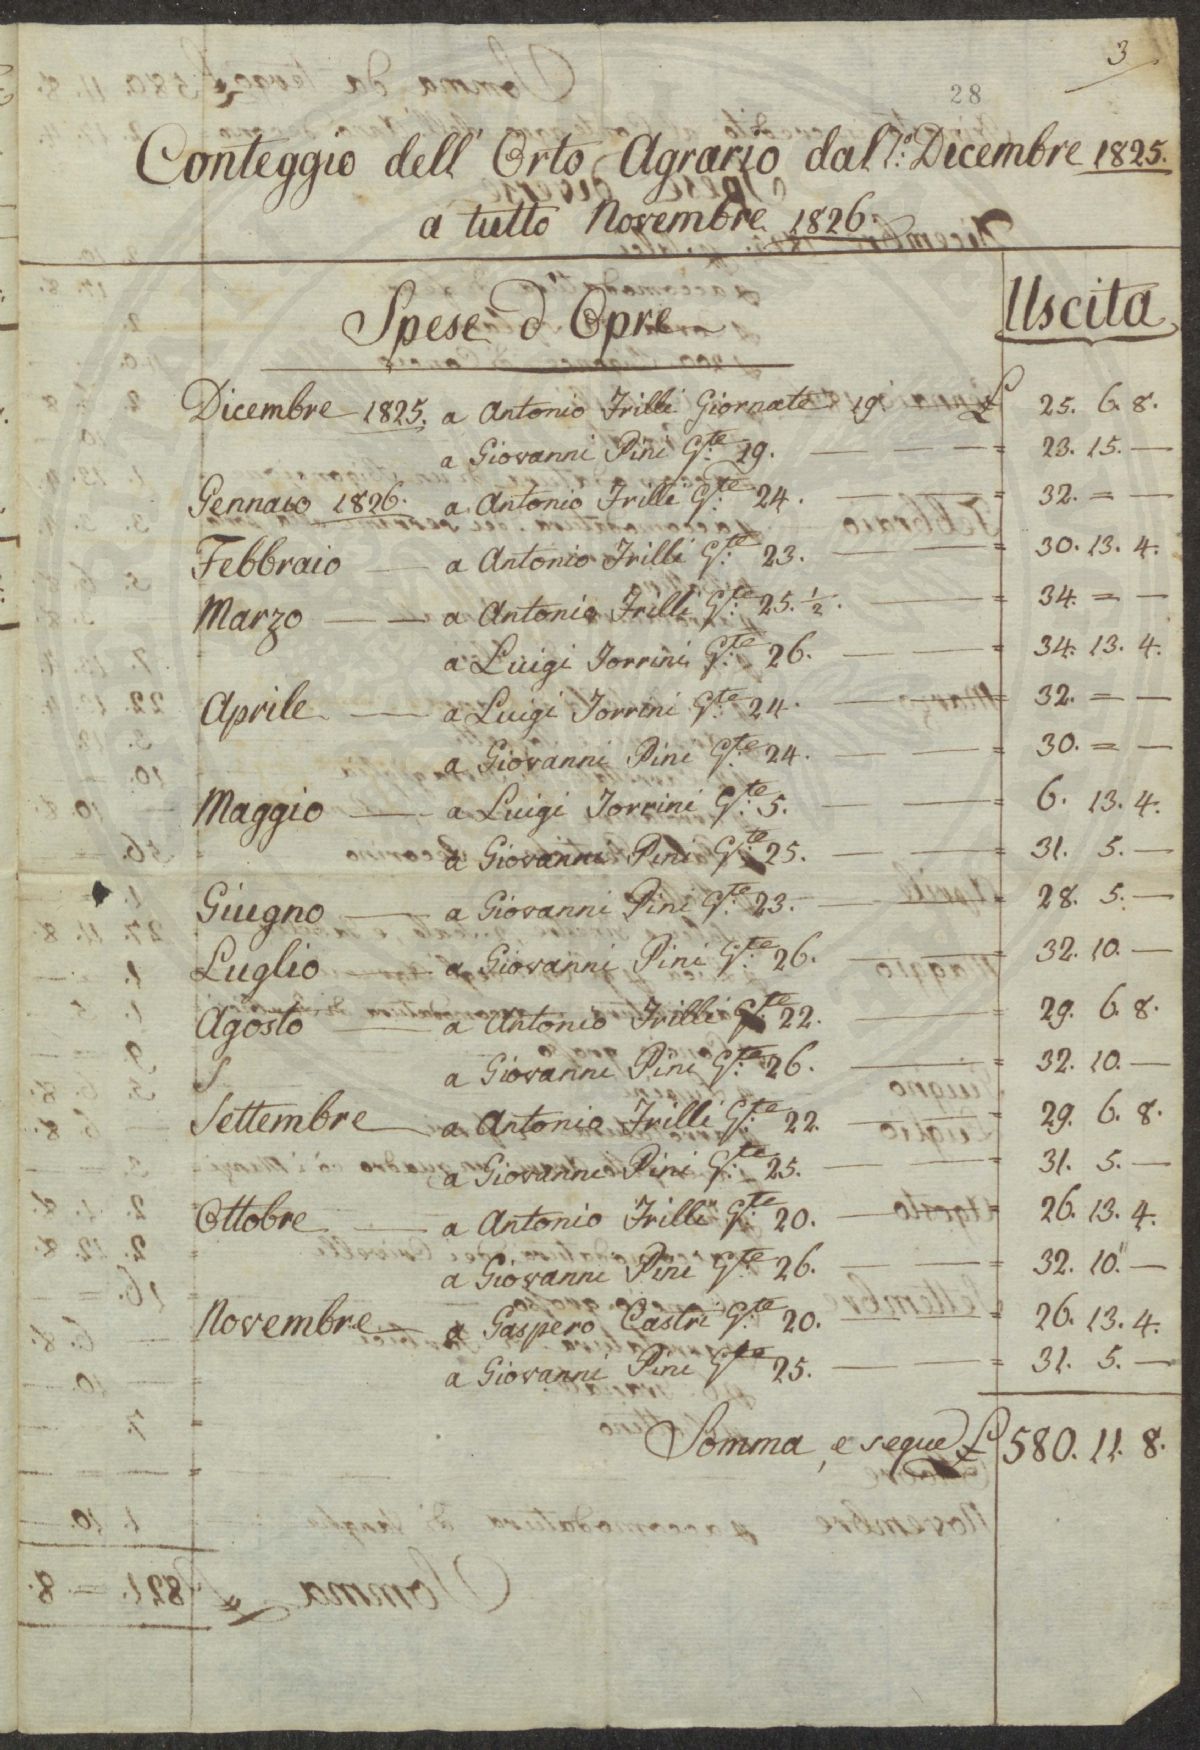 3
28
Conteggio dell' Orto Agrario dal 1.° Decembre 1825.
a tutto Novembre 1826
Spese d'Opre Uscita
Dicembre 1825. a Antonio Trilli Giornate 19 — £ 25. 6. 8.
a Giovanni Pini G.te 19. — — = 23. 15. —
Gennaio 1826. a Antonio Trilli G.te 24. — = 32. = —
Febbraio — a Antonio Trilli G.te 23. — — = 30. 13. 4.
Marzo — — a Antonio Trilli G.te 25. ½. — = 34. = —
a Luigi Torrini G.te 26. — — = 34. 13. 4.
Aprile — a Luigi Torrini G.te 24. — — = 32. = —
a Giovanni Pini G.te 24. — — = 30. = —
Maggio — a Luigi Torrini G.te 5. — — = 6. 13. 4.
a Giovanni Pini G.te 25. — — = 31. 5. —
Giugno — a Giovanni Pini G.te 23. — — = 28. 5. —
Luglio — a Giovanni Pini G.te 26. — = 32. 10. —
Agosto — a Antonio Trilli G.te 22. — = 29. 6. 8.
a Giovanni Pini G.te 26. — = 32. 10. —
Settembre — a Antonio Trilli G.te 22. — = 29. 6. 8.
a Giovanni Pini G.te 25. — — = 31. 5. —
Ottobre — a Antonio Trilli G.te 20. — = 26. 13. 4.
a Giovanni Pini G.te 26. — — = 32. 10. —
Novembre — a Gaspero Castri G.te 20. — — = 26. 13. 4.
a Giovanni Pini G.te 25. — — = 31. 5. —
Somma, e segue £ 580. 11. 8.